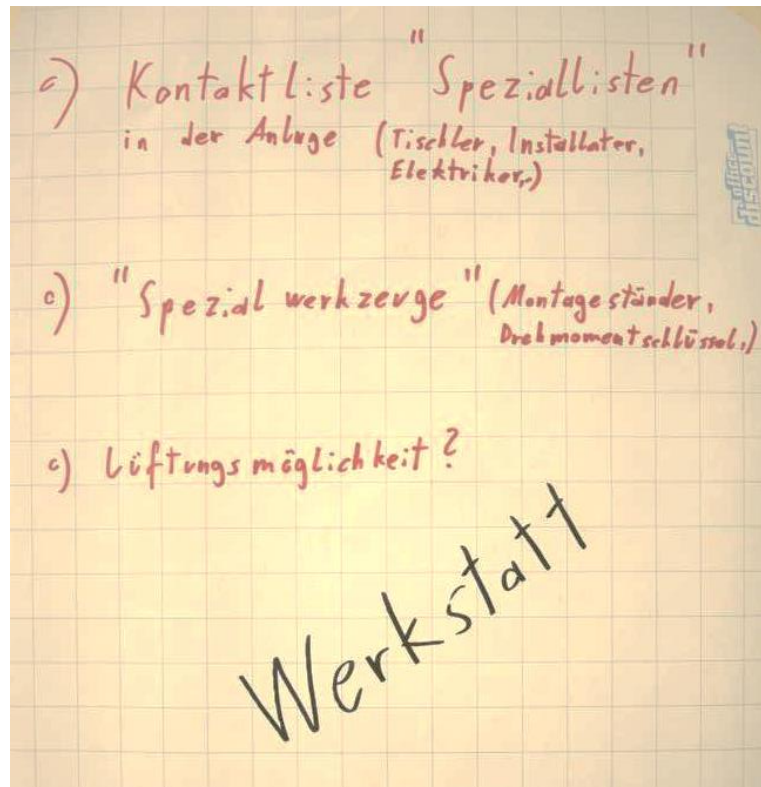 o) Kontaktliste "Speziallisten"
in der Anlage (Tischler, Installater,
Elektriker,.)
o) "Spezial werkzeuge" (Montageständer,
Drehmomentschlüssel,.)
o) Lüftungsmöglichkeit?
Werkstatt
office
discount